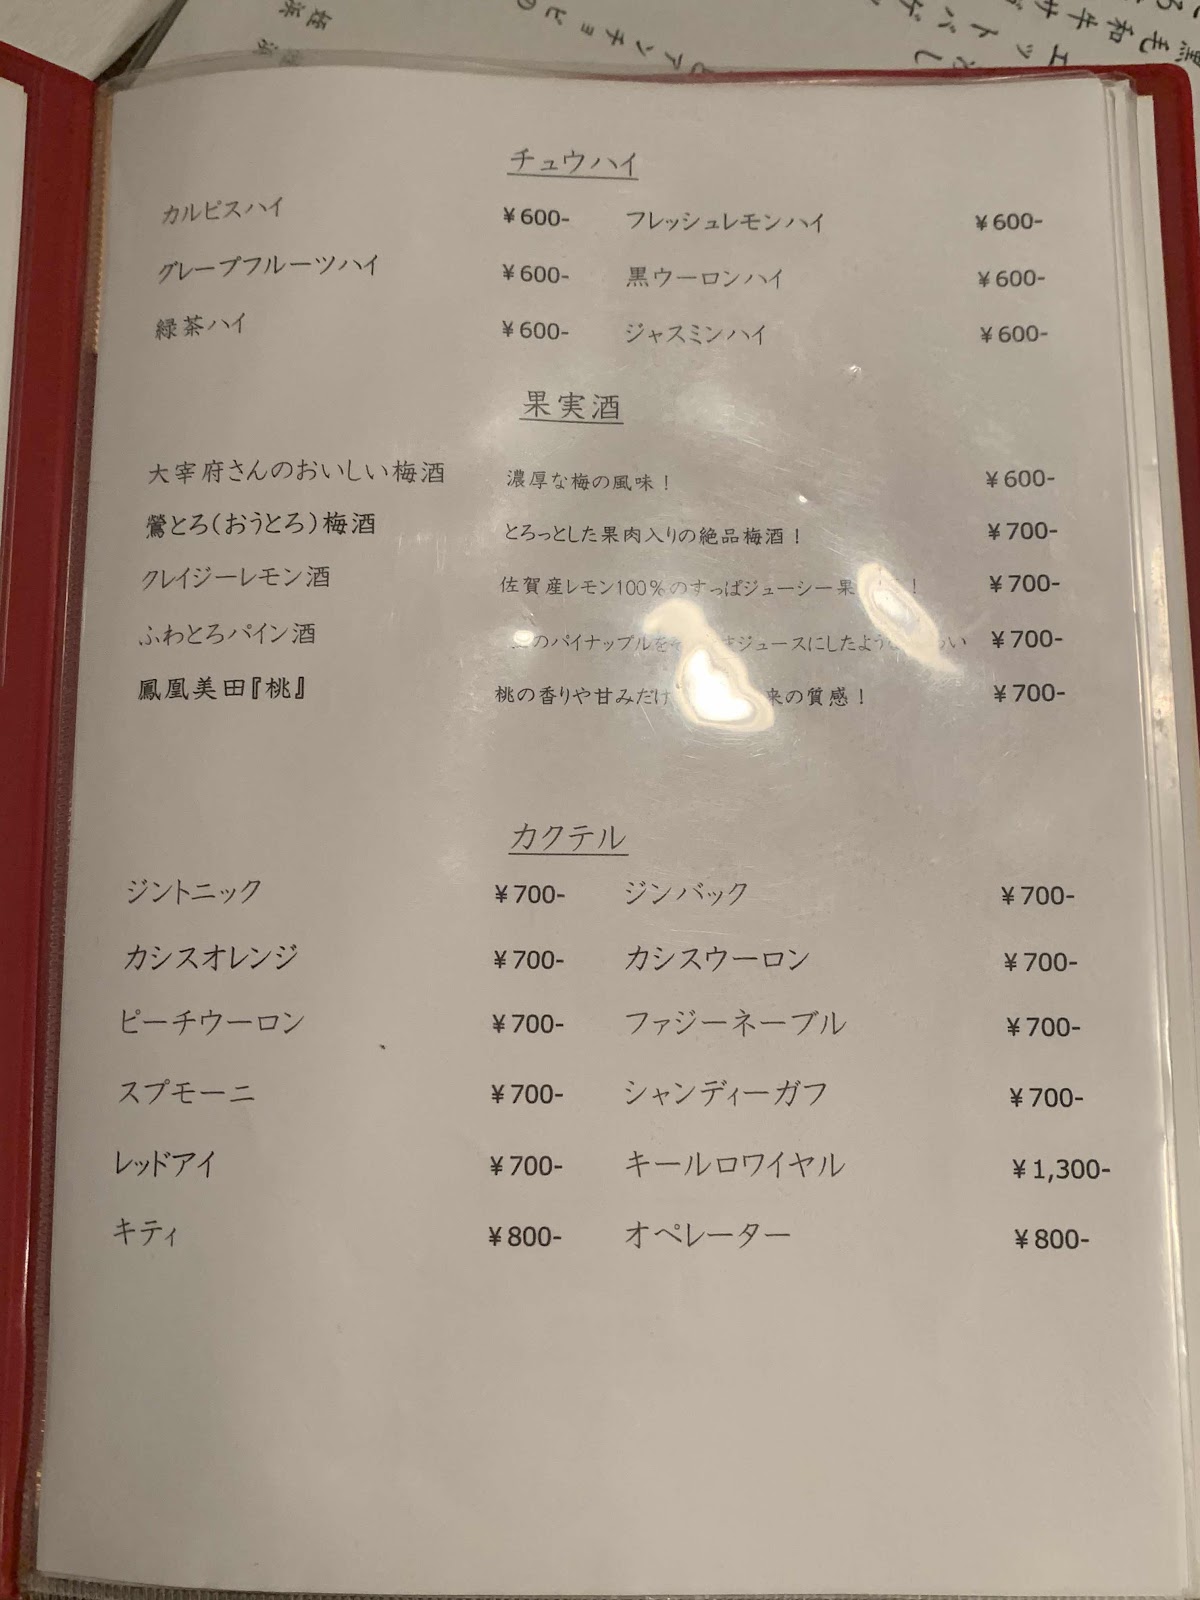 チュウハイ
カルピスハイ ¥600- フレッシュレモンハイ ¥600-
グレープフルーツハイ ¥600- 黒ウーロンハイ ¥600-
緑茶ハイ ¥600- ジャスミンハイ ¥600-
果実酒
大宰府さんのおいしい梅酒 濃厚な梅の風味！ ¥600-
鶯とろ(おうとろ)梅酒 とろっとした果肉入りの絶品梅酒！ ¥700-
クレイジーレモン酒 佐賀産レモン100%のすっぱジューシー果 ！ ¥700-
ふわとろパイン酒 のパイナップルを ジュースにしたような ¥700-
鳳凰美田『桃』 桃の香りや甘みだけ 来の質感！ ¥700-
カクテル
ジントニック ¥700- ジンバック ¥700-
カシスオレンジ ¥700- カシスウーロン ¥700-
ピーチウーロン ¥700- ファジーネーブル ¥700-
スプモーニ ¥700- シャンディーガフ ¥700-
レッドアイ ¥700- キールロワイヤル ¥1,300-
キティ ¥800- オペレーター ¥800-